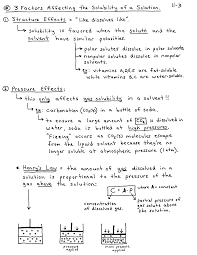 11-3
* 3 Factors Affecting the Solubility of a Solution.
① Structure Effects → "Like dissolves like".
↳ Solubility is favored when the solute and the
solvent have similar polarities.
↳ polar solutes dissolve in polar solvents
↳ nonpolar solutes dissolve in nonpolar
solvents.
↳ eg: vitamins A,D,E,K are fat-soluble
while vitamins B,C are water-soluble.
② Pressure Effects:
↳ this only affects gas solubility in a solvent!!
↳ eg: carbonation (CO₂(g)) in a bottle of soda.
↳ to ensure a large amount of CO₂ is dissolved in
water, soda is bottled at high pressure.
"Fizzing" occurs as CO₂(g) molecules escape
from the liquid solvent because they're no
longer soluble at atmospheric pressure (1 atm).
↳ Henry's Law = the amount of gas dissolved in a
solution is proportional to the pressure of the
gas above the solution:
C = k·P where k = constant
concentration
of dissolved gas.
partial pressure of
gas solute above
the solution.